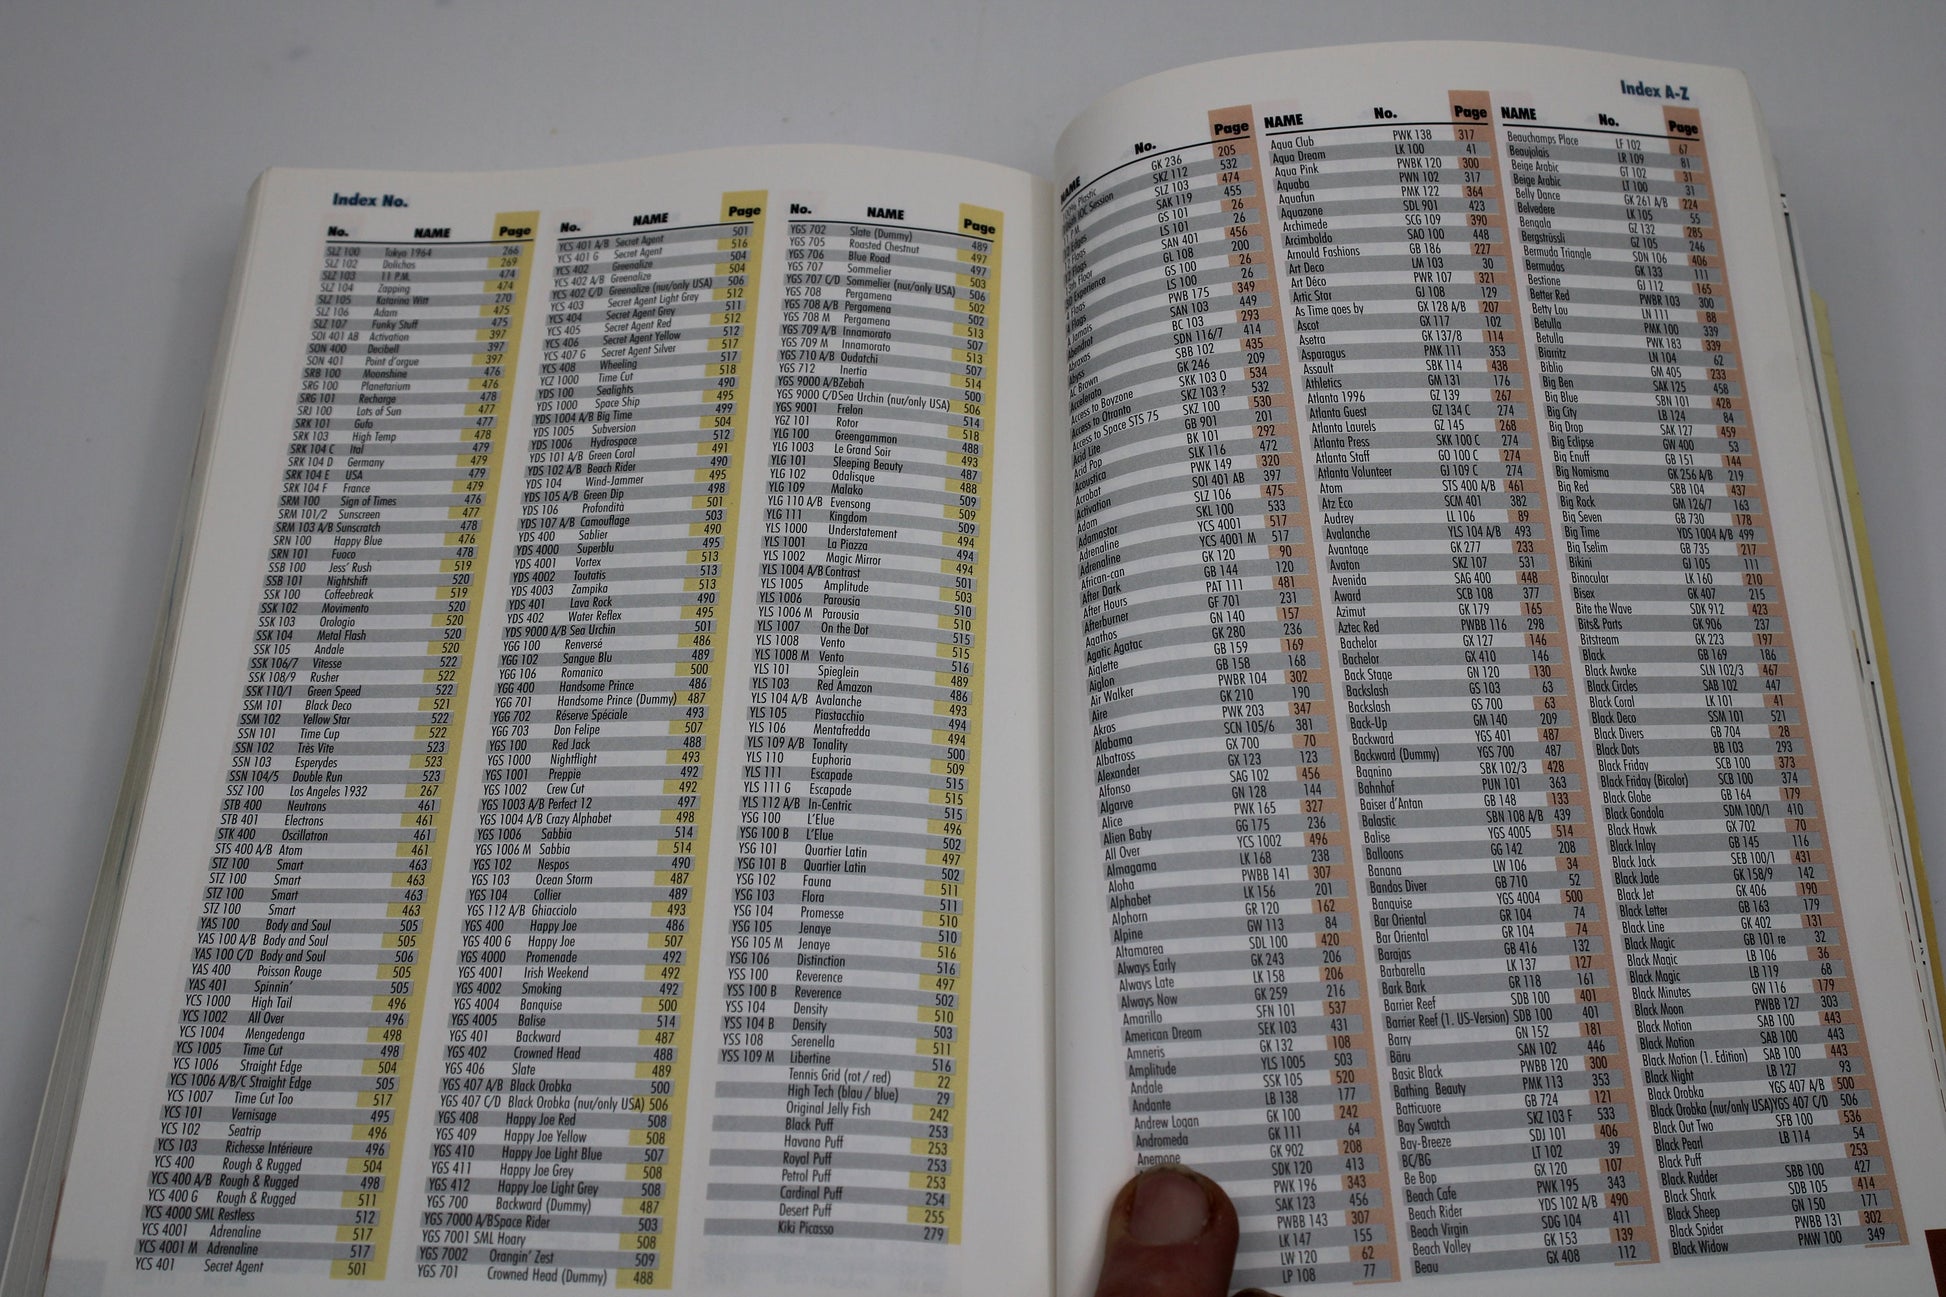 Index No.
No. NAME Page
SLZ 100 Tokyo 1964 266
SLZ 102 Dolichos 269
SLZ 103 11 P.M. 474
SLZ 104 Zapping 474
SLZ 105 Katarina Witt 270
SLZ 106 Adam 475
SLZ 107 Funky Stuff 475
SOI 401 AB Activation 397
SON 400 Decibell 397
SON 401 Point d'orgue 397
SRB 100 Moonshine 476
SRG 100 Planetarium 476
SRG 101 Recharge 476
SRJ 100 Lots of Sun 477
SRK 101 Gufo 477
SRK 103 High Temp 478
SRK 104 C Ital 479
SRK 104 D Germany 479
SRK 104 E USA 479
SRK 104 F France 479
SRM 100 Sign of Times 476
SRM 101/2 Sunscreen 477
SRM 103 A/B Sunscratch 478
SRN 100 Happy Blue 476
SRN 101 Fuoco 478
SSB 100 Jess' Rush 519
SSB 101 Nightshift 520
SSK 100 Coffeebreak 519
SSK 102 Movimento 520
SSK 103 Orologio 520
SSK 104 Metal Flash 520
SSK 105 Andale 520
SSK 106/7 Vitesse 522
SSK 108/9 Rusher 522
SSK 110/1 Green Speed 522
SSM 101 Black Deco 521
SSM 102 Yellow Star 522
SSN 101 Time Cup 522
SSN 102 Très Vite 523
SSN 103 Esperydes 523
SSN 104/5 Double Run 523
SSZ 100 Los Angeles 1932 267
STB 400 Neutrons 461
STB 401 Electrons 461
STK 400 Oscillatron 461
STS 400 A/B Atom 461
STZ 100 Smart 463
STZ 100 Smart 463
STZ 100 Smart 463
STZ 100 Smart 463
YAS 100 Body and Soul 505
YAS 100 A/B Body and Soul 505
YAS 100 C/D Body and Soul 506
YAS 400 Poisson Rouge 505
YAS 401 Spinnin' 505
YCS 1000 High Tail 496
YCS 1002 All Over 496
YCS 1004 Mengedenga 498
YCS 1005 Time Cut 498
YCS 1006 Straight Edge 504
YCS 1006 A/B/C Straight Edge 505
YCS 1007 Time Cut Too 517
YCS 101 Vernisage 495
YCS 102 Seatrip 496
YCS 103 Richesse Intérieure 496
YCS 400 Rough & Rugged 504
YCS 400 A/B Rough & Rugged 498
YCS 400 G Rough & Rugged 511
YCS 4000 SML Restless 512
YCS 4001 Adrenaline 517
YCS 4001 M Adrenaline 517
YCS 401 Secret Agent 501
No. NAME Page
YCS 401 A/B Secret Agent 501
YCS 401 G Secret Agent 516
YCS 402 Greenalize 504
YCS 402 A/B Greenalize 504
YCS 402 C/D Greenalize (nur/only USA) 506
YCS 403 Secret Agent Light Grey 512
YCS 404 Secret Agent Grey 511
YCS 405 Secret Agent Red 512
YCS 406 Secret Agent Yellow 512
YCS 407 G Secret Agent Silver 517
YCS 408 Wheeling 517
YCZ 1000 Time Cut 518
YDS 100 Sealights 490
YDS 1000 Space Ship 495
YDS 1004 A/B Big Time 499
YDS 1005 Subversion 504
YDS 1006 Hydrospace 512
YDS 101 A/B Green Coral 491
YDS 102 A/B Beach Rider 490
YDS 104 Wind-Jammer 495
YDS 105 A/B Green Dip 498
YDS 106 Profondità 501
YDS 107 A/B Camouflage 503
YDS 400 Sablier 490
YDS 4000 Superblu 495
YDS 4001 Vortex 513
YDS 4002 Toutatis 513
YDS 4003 Zampika 513
YDS 401 Lava Rock 490
YDS 402 Water Reflex 495
YDS 9000 A/B Sea Urchin 501
YGG 100 Renversé 486
YGG 102 Sangue Blu 489
YGG 106 Romanico 500
YGG 400 Handsome Prince 486
YGG 701 Handsome Prince (Dummy) 487
YGG 702 Réserve Spéciale 493
YGG 703 Don Felipe 507
YGS 100 Red Jack 488
YGS 1000 Nightflight 493
YGS 1001 Preppie 492
YGS 1002 Crew Cut 492
YGS 1003 A/B Perfect 12 497
YGS 1004 A/B Crazy Alphabet 498
YGS 1006 Sabbia 514
YGS 1006 M Sabbia 514
YGS 102 Nespos 490
YGS 103 Ocean Storm 487
YGS 104 Collier 489
YGS 112 A/B Ghiacciolo 493
YGS 400 Happy Joe 486
YGS 400 G Happy Joe 507
YGS 4000 Promenade 492
YGS 4001 Irish Weekend 492
YGS 4002 Smoking 492
YGS 4004 Banquise 500
YGS 4005 Balise 514
YGS 401 Backward 487
YGS 402 Crowned Head 488
YGS 406 Slate 489
YGS 407 A/B Black Orobka 500
YGS 407 C/D Black Orobka (nur/only USA) 506
YGS 408 Happy Joe Red 508
YGS 409 Happy Joe Yellow 508
YGS 410 Happy Joe Light Blue 507
YGS 411 Happy Joe Grey 508
YGS 412 Happy Joe Light Grey 508
YGS 700 Backward (Dummy) 487
YGS 7000 A/B Space Rider 503
YGS 7001 SML Hoary 508
YGS 7002 Orangin' Zest 509
YGS 701 Crowned Head (Dummy) 488
No. NAME Page
YGS 702 Slate (Dummy) 489
YGS 705 Roasted Chestnut 497
YGS 706 Blue Road 497
YGS 707 Sommelier 503
YGS 707 C/D Sommelier (nur/only USA) 506
YGS 708 Pergamena 502
YGS 708 A/B Pergamena 502
YGS 708 M Pergamena 513
YGS 709 A/B Innamorato 507
YGS 709 M Innamorato 513
YGS 710 A/B Oudatchi 507
YGS 712 Inertia 514
YGS 9000 A/B Zebah 500
YGS 9000 C/D Sea Urchin (nur/only USA) 506
YGS 9001 Frelon 514
YGZ 101 Rotor 518
YLG 100 Greengammon 488
YLG 1003 Le Grand Soir 493
YLG 101 Sleeping Beauty 487
YLG 102 Odalisque 488
YLG 109 Malako 509
YLG 110 A/B Evensong 509
YLG 111 Kingdom 509
YLS 1000 Understatement 494
YLS 1001 La Piazza 494
YLS 1002 Magic Mirror 494
YLS 1004 A/B Contrast 501
YLS 1005 Amplitude 503
YLS 1006 Parousia 510
YLS 1006 M Parousia 510
YLS 1007 On the Dot 515
YLS 1008 Vento 515
YLS 1008 M Vento 516
YLS 101 Spieglein 489
YLS 103 Red Amazon 486
YLS 104 A/B Avalanche 493
YLS 105 Piastacchio 494
YLS 106 Mentafredda 494
YLS 109 A/B Tonality 500
YLS 110 Euphoria 509
YLS 111 Escapade 515
YLS 111 G Escapade 515
YLS 112 A/B In-Centric 515
YSG 100 L'Elue 496
YSG 100 B L'Elue 502
YSG 101 Quartier Latin 497
YSG 101 B Quartier Latin 502
YSG 102 Fauna 511
YSG 103 Flora 511
YSG 104 Promesse 510
YSG 105 Jenaye 510
YSG 105 M Jenaye 516
YSG 106 Distinction 516
YSS 100 Reverence 497
YSS 100 B Reverence 502
YSS 104 Density 510
YSS 104 B Density 503
YSS 108 Serenella 511
YSS 109 M Libertine 516
Tennis Grid (rot / red) 22
High Tech (blau / blue) 29
Original Jelly Fish 242
Black Puff 253
Havana Puff 253
Royal Puff 253
Petrol Puff 253
Cardinal Puff 254
Desert Puff 255
Kiki Picasso 279
Index A-Z
No. Page
Plastic GK 236 205
IOC Session SKZ 112 532
P.M. SLZ 103 474
Edges SAK 119 455
Flags GS 101 26
Flags LS 101 26
13th Floor SAN 401 456
3D Experience GL 108 200
4 Flags GS 100 26
4 Flags LS 100 26
A Jamais PWB 175 349
Abendrot SAN 103 449
Abraxas BC 103 293
Abyss SDN 116/7 414
AC Brown SBB 102 435
Accelerato GK 246 209
Access to Boyzone SKK 103 O 534
Access to Otranto SKZ 103 ? 532
Access to Space STS 75 SKZ 100 530
Acid Lite GB 901 201
Acid Pop BK 101 292
Acoustica SLK 116 472
Acrobat PWK 149 320
Activation SOI 401 AB 397
Adam SLZ 106 475
Adamastor SKL 100 533
Adrenaline YCS 4001 517
Adrenaline YCS 4001 M 517
African-can GK 120 90
After Dark GB 144 120
After Hours PAT 111 481
Afterburner GF 701 231
Agathos GN 140 157
Agatic Agatac GK 280 236
Aiglette GB 159 169
Aiglon GB 158 168
Air Walker PWBR 104 302
Aire GK 210 190
Akros PWK 203 347
Alabama SCN 105/6 381
Albatross GX 700 70
Alexander GX 123 123
Alfonso SAG 102 456
Algarve GN 128 144
Alice PWK 165 327
Alien Baby GG 175 236
All Over YCS 1002 496
Almagama LK 168 238
Aloha PWBB 141 307
Alphabet LK 156 201
Alphorn GR 120 162
Alpine GW 113 84
Altamarea SDL 100 420
Always Early GK 243 206
Always Late LK 158 206
Always Now GK 259 216
Amarillo SFN 101 537
American Dream SEK 103 431
Amneris GK 132 108
Amplitude YLS 1005 503
Andale SSK 105 520
Andante LB 138 177
Andrew Logan GK 100 242
Andromeda GK 111 64
Anemone GK 902 208
SDK 120 413
PWK 196 343
SAK 123 456
PWBB 143 307
LK 147 155
LW 120 62
LP 108 77
NAME No. Page
Aqua Club PWK 138 317
Aqua Dream LK 100 41
Aqua Pink PWBK 120 300
Aquaba PWN 102 317
Aquafun PMK 122 364
Aquazone SDL 901 423
Archimede SCG 109 390
Arcimboldo SAO 100 448
Arnould Fashions GB 186 227
Art Deco LM 103 30
Art Deco PWR 107 321
Artic Star GJ 108 129
As Time goes by GX 128 A/B 207
Ascot GX 117 102
Asetra GK 137/8 114
Asparagus PMK 111 353
Assault SBK 114 438
Athletics GM 131 176
Atlanta 1996 GZ 139 267
Atlanta Guest GZ 134 C 274
Atlanta Laurels GZ 145 268
Atlanta Press SKK 100 C 274
Atlanta Staff GO 100 C 274
Atlanta Volunteer GJ 109 C 274
Atom STS 400 A/B 461
Atz Eco SCM 401 382
Audrey LL 106 89
Avalanche YLS 104 A/B 493
Avantage GK 277 233
Avaton SKZ 107 531
Avenida SAG 400 448
Award SCB 108 377
Azimut GK 179 165
Aztec Red PWBB 116 298
Bachelor GX 127 146
Bachelor GX 410 146
Back Stage GN 120 130
Backslash GS 103 63
Backslash GS 700 63
Back-Up GM 140 209
Backward YGS 401 487
Backward (Dummy) YGS 700 487
Bagnino SBK 102/3 428
Bahnhof PUN 101 363
Baiser d'Antan GB 148 133
Balastic SBN 108 A/B 439
Balise YGS 4005 514
Balloons GG 142 208
Banana LW 106 34
Bandos Diver GB 710 52
Banquise YGS 4004 500
Bar Oriental GR 104 74
Bar Oriental GR 104 74
Barajas GB 416 132
Barbarella LK 137 127
Bark Bark GR 118 161
Barrier Reef SDB 100 401
Barrier Reef (1. US-Version) SDB 100 401
Barry GN 152 181
Baru SAN 102 446
Basic Black PWBB 120 300
Bathing Beauty PMK 113 353
Batticuore GB 724 121
Bay Swatch SKZ 103 F 533
Bay-Breeze SDJ 101 406
BC/BG LT 102 39
Be Bop GX 120 107
Beach Cafe PWK 195 343
Beach Rider YDS 102 A/B 490
Beach Virgin SDG 104 411
Beach Volley GK 153 139
Beau GX 408 112
NAME No. Page
Beauchamps Place LF 102 67
Beaujolais LR 109 81
Beige Arabic GT 102 31
Beige Arabic LT 100 31
Belly Dance GK 261 A/B 224
Belvedere LK 105 55
Bengala GZ 132 285
Bergstrüssli GZ 105 246
Bermuda Triangle SDN 106 406
Bermudas GK 133 111
Bestione GJ 112 165
Better Red PWBR 103 300
Betty Lou LN 111 88
Betulla PMK 100 339
Betulla PWK 183 339
Biarritz LN 104 62
Biblio GM 405 233
Big Ben SAK 125 458
Big Blue SBN 101 428
Big City LB 124 84
Big Drop SAK 127 459
Big Eclipse GW 400 53
Big Enuff GB 151 144
Big Nomisma GK 256 A/B 219
Big Red SBB 104 437
Big Rock GM 126/7 163
Big Seven GB 730 178
Big Time YDS 1004 A/B 499
Big Tselim GB 735 217
Bikini GJ 105 111
Binocular LK 160 210
Bisex GK 407 215
Bite the Wave SDK 912 423
Bits& Parts GK 906 237
Bitstream GK 223 197
Black GB 169 186
Black Awake SLN 102/3 467
Black Circles SAB 102 447
Black Coral LK 101 41
Black Deco SSM 101 521
Black Divers GB 704 28
Black Dots BB 103 293
Black Friday SCB 100 373
Black Friday (Bicolor) SCB 100 374
Black Globe GB 164 179
Black Gondola SDM 100/1 410
Black Hawk GX 702 70
Black Inlay GB 145 116
Black Jack SEB 100/1 431
Black Jade GK 158/9 142
Black Jet GK 406 190
Black Letter GB 163 179
Black Line GK 402 131
Black Magic GB 101 re 32
Black Magic LB 106 36
Black Magic LB 119 68
Black Minutes GW 116 179
Black Moon PWBB 127 303
Black Motion SAB 100 443
Black Motion SAB 100 443
Black Motion (1. Edition) SAB 100 443
Black Night LB 127 93
Black Orobka YGS 407 A/B 500
Black Orobka (nur/only USA) YGS 407 C/D 506
Black Out Two SFB 100 536
Black Pearl LB 114 54
Black Puff 253
Black Rudder SBB 100 427
Black Shark SDB 105 414
Black Sheep GN 150 171
Black Spider PWBB 131 302
Black Widow PMW 100 349